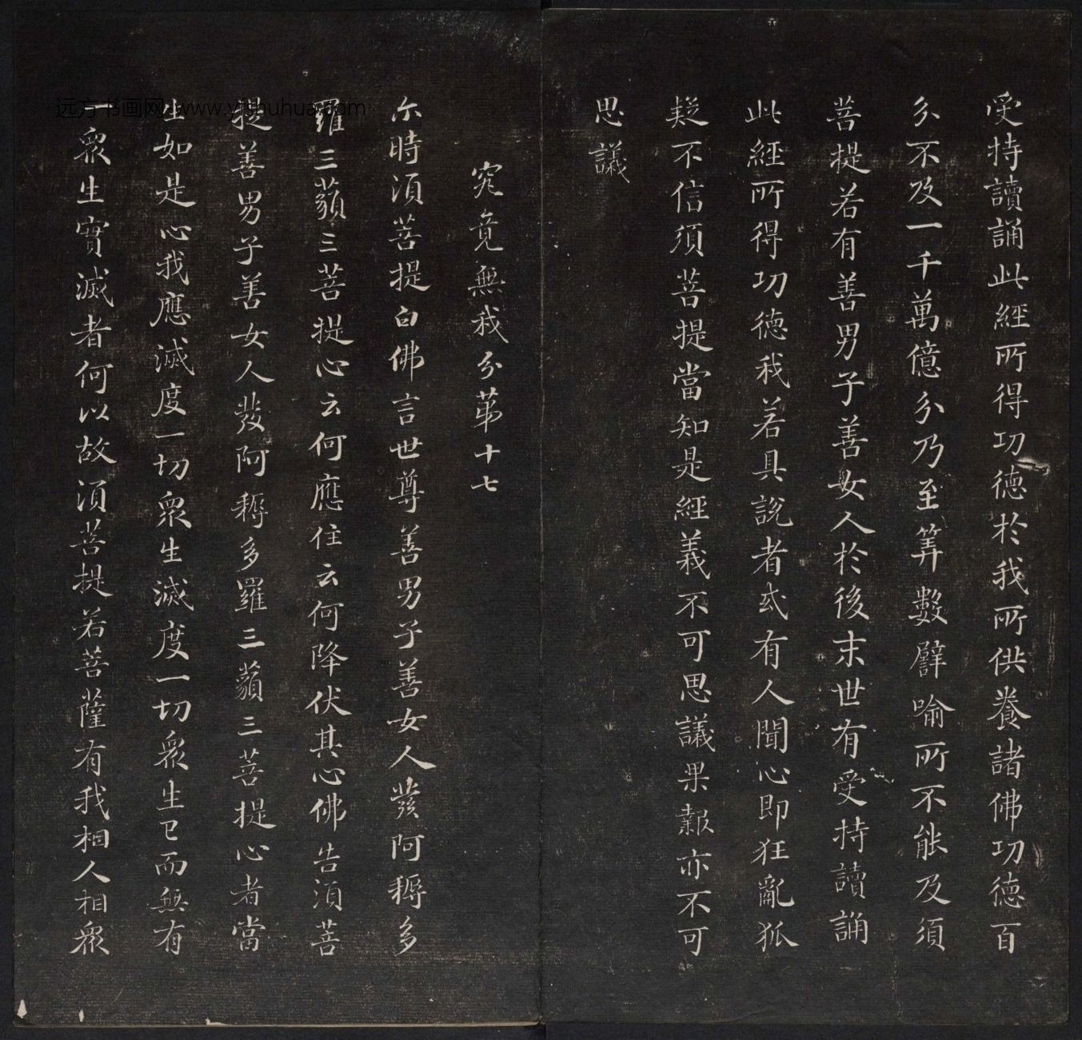 受持讀誦此經所得功德於我所供養諸佛功德百
分不及一千萬億分乃至筭數譬喻所不能及須
菩提若有善男子善女人於後末世有受持讀誦
此經所得功德我若具說者或有人聞心即狂亂狐
疑不信須菩提當知是經義不可思議果報亦不可
思議
究竟無我分第十七
尒時須菩提白佛言世尊善男子善女人發阿耨多
羅三藐三菩提心云何應住云何降伏其心佛告須菩
提善男子善女人發阿耨多羅三藐三菩提心者當
生如是心我應滅度一切眾生滅度一切眾生已而無有
一眾生實滅者何以故須菩提若菩薩有我相人相眾
远方书画网 www.yfshuhua.com